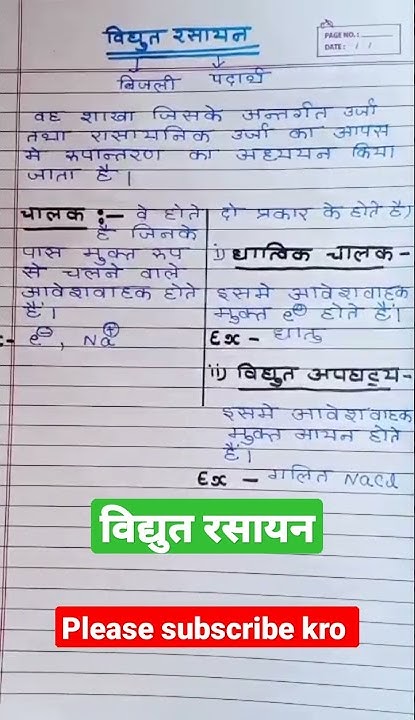 विद्युत रसायन
PAGE NO.:
DATE: / /
बिजली पदार्थ
वह शाखा जिसके अन्तर्गत उर्जा
तथा रासायनिक उर्जा का आपस
मे रूपान्तरण का अध्ययन किया
जाता है।
चालक :- वे होते
है जिनके
पास मुक्त रूप
से चलने वाले
आवेशवाहक होते
हैं।
:- e⊖, Na⊕
दो प्रकार के होते है।
i) धात्विक चालक -
इसमे आवेशवाहक
मुक्त e⊖ होते हैं।
Ex - धातु
ii) विद्युत अपघट्य -
इसमे आवेशवाहक
मुक्त आयन होते
हैं।
Ex - गलित NaCl
विद्युत रसायन
Please subscribe kro